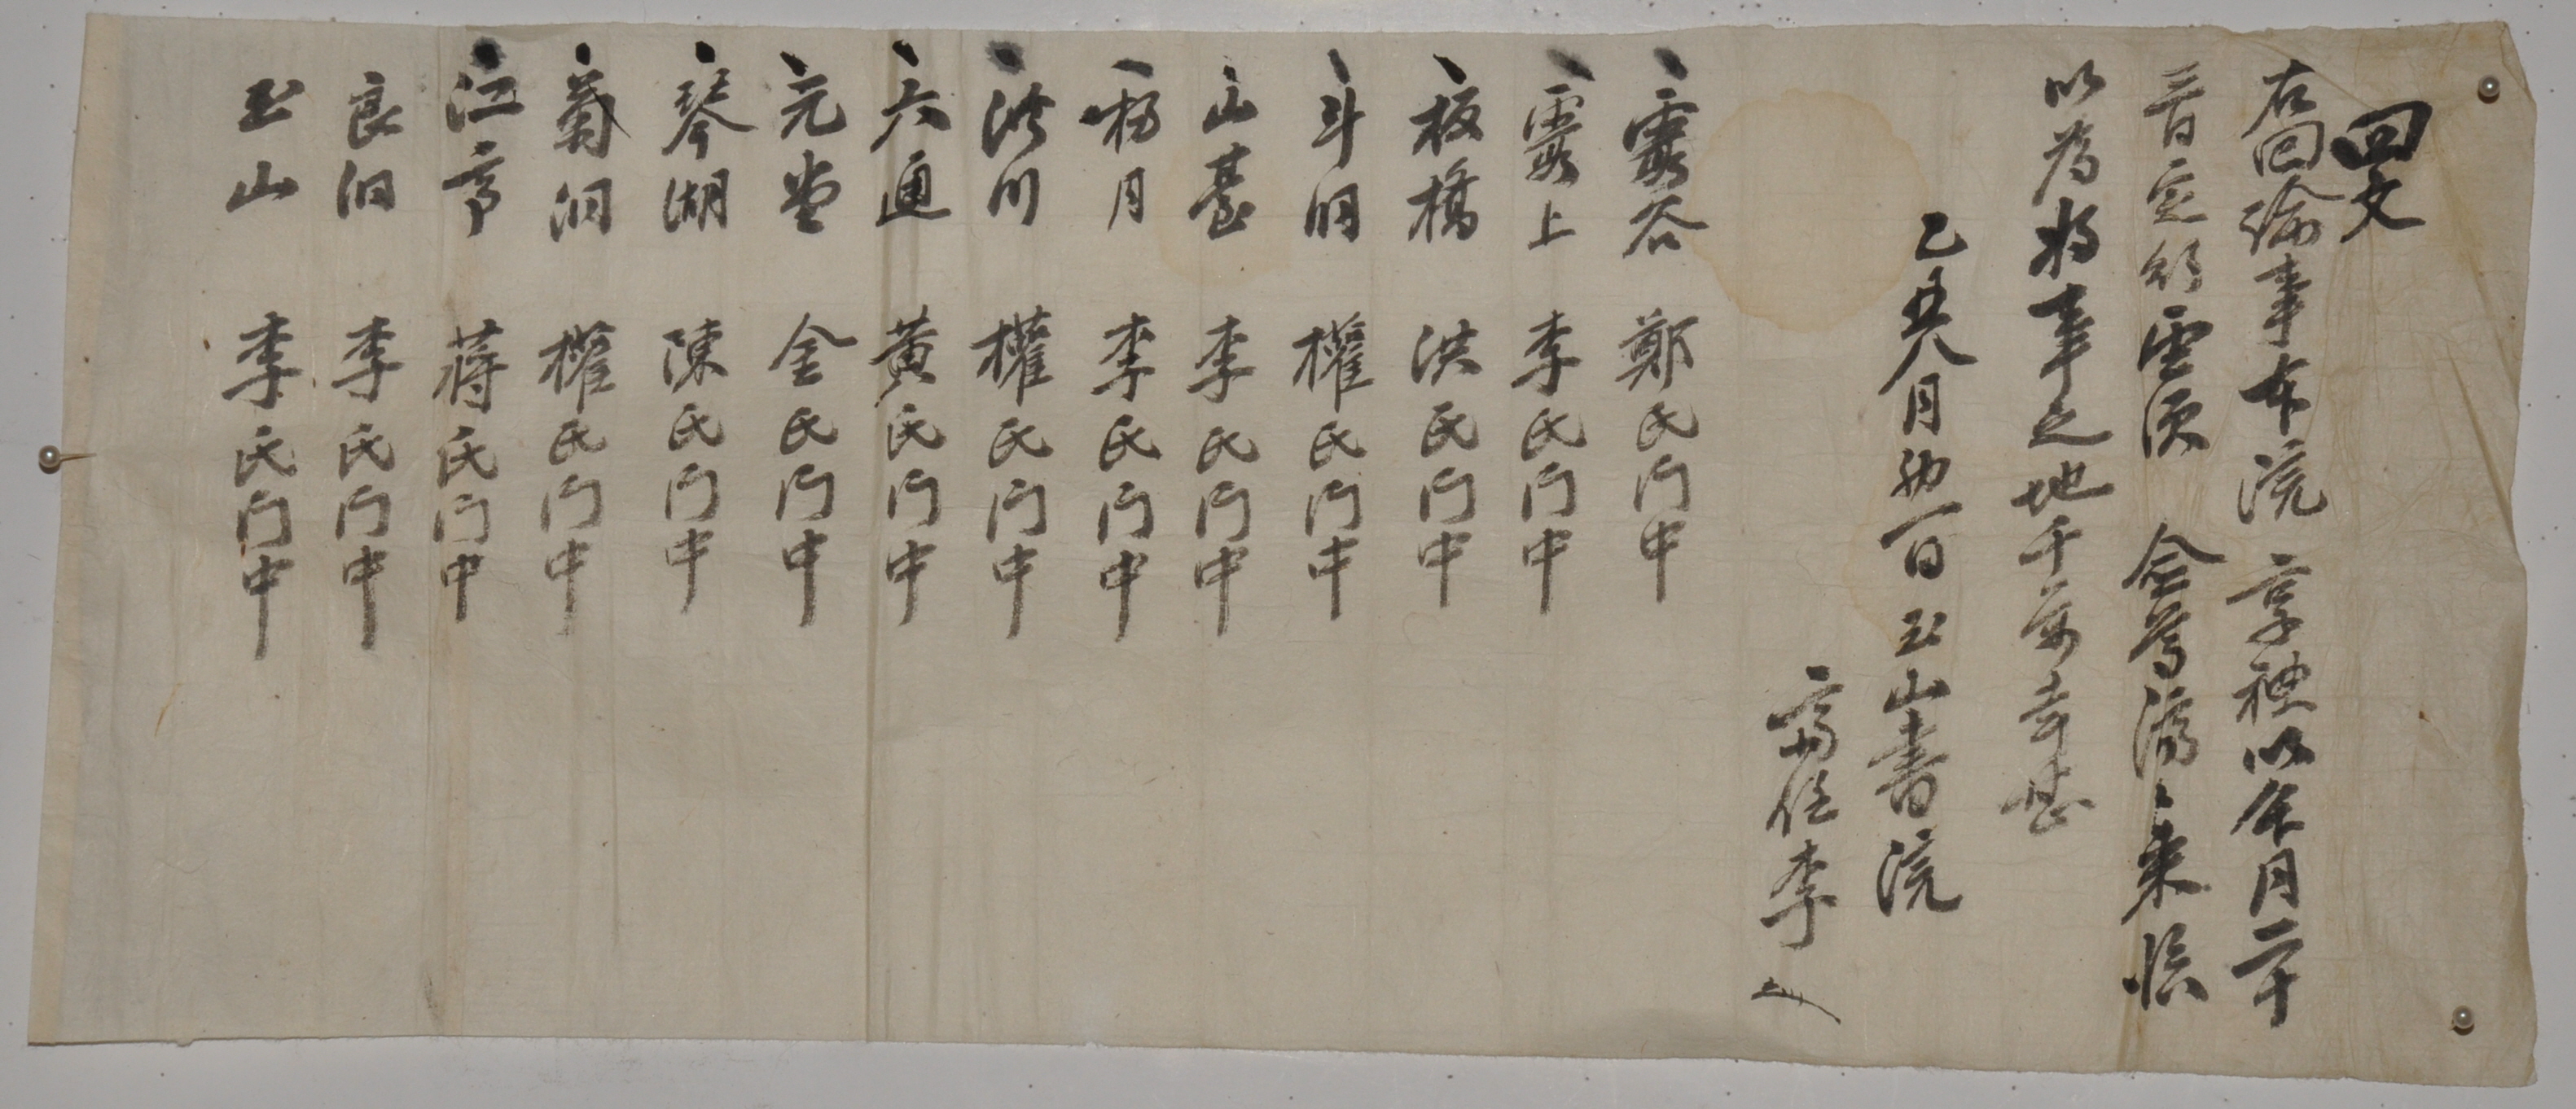 回文
右回諭事本院 享禮以今月二十
三日定行 玊須 僉尊濟濟來臨
以爲將事之地千萬幸甚
乙丑八月初一日 玉山書院
齋任李
霞谷 鄭氏門中
霞上 李氏門中
板橋 洪氏門中
斗洞 權氏門中
山臺 李氏門中
楊月 李氏門中
洪川 權氏門中
六通 黃氏門中
元堂 金氏門中
琴湖 陳氏門中
菊洞 權氏門中
江亭 蔣氏門中
良洞 李氏門中
玉山 李氏門中